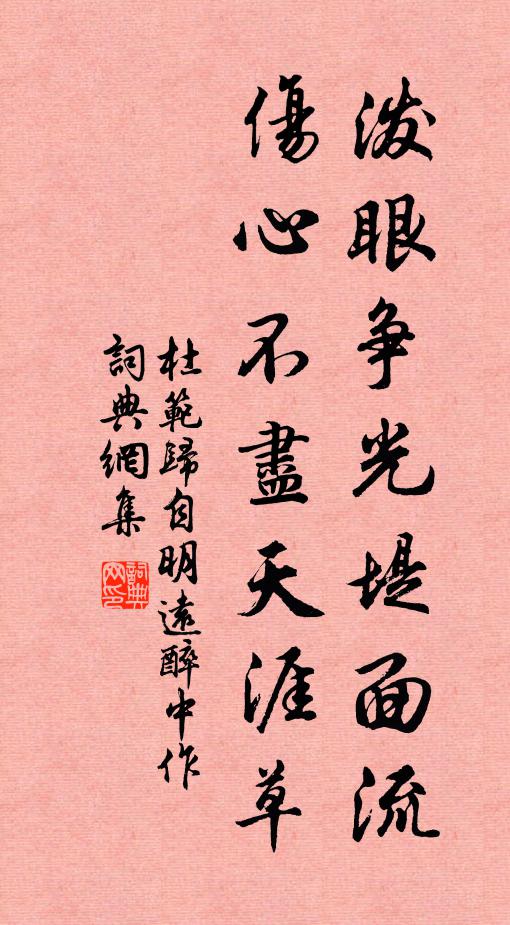 泼眼争光堤面流
傷心不盡天涯草
杜範歸自明遠醉中作
詞典網集
詞典网印